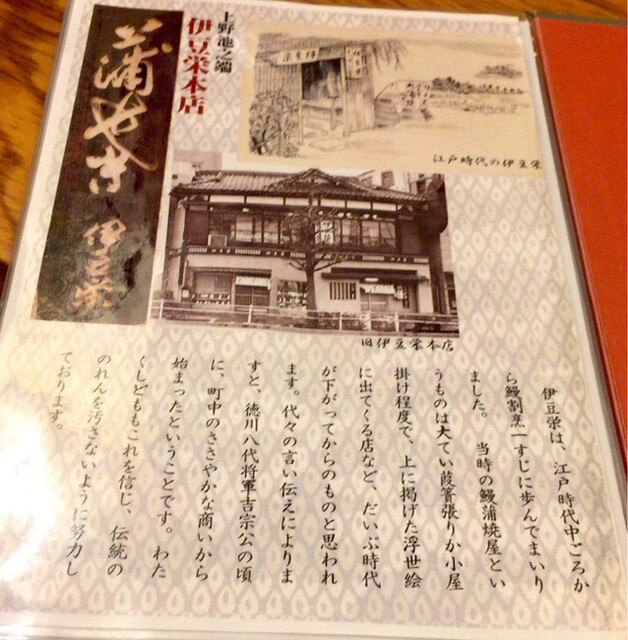 上野池之端
伊豆栄本店
蒲焼
伊豆栄
江戸時代の伊豆栄
旧伊豆栄本店
伊豆栄は、江戸時代中ごろか
ら鰻割烹一すじに歩んでまいり
ました。　当時の鰻蒲焼屋とい
うものは大てい葭簀張りか小屋
掛け程度で、上に掲げた浮世絵
に出てくる店など、だいぶ時代
が下がってからのものと思われ
ます。代々の言い伝えによりま
すと、徳川八代将軍吉宗公の頃
に、町中のささやかな商いから
始まったということです。わた
くしどももこれを信じ、伝統の
のれんを汚さないように努力し
ております。